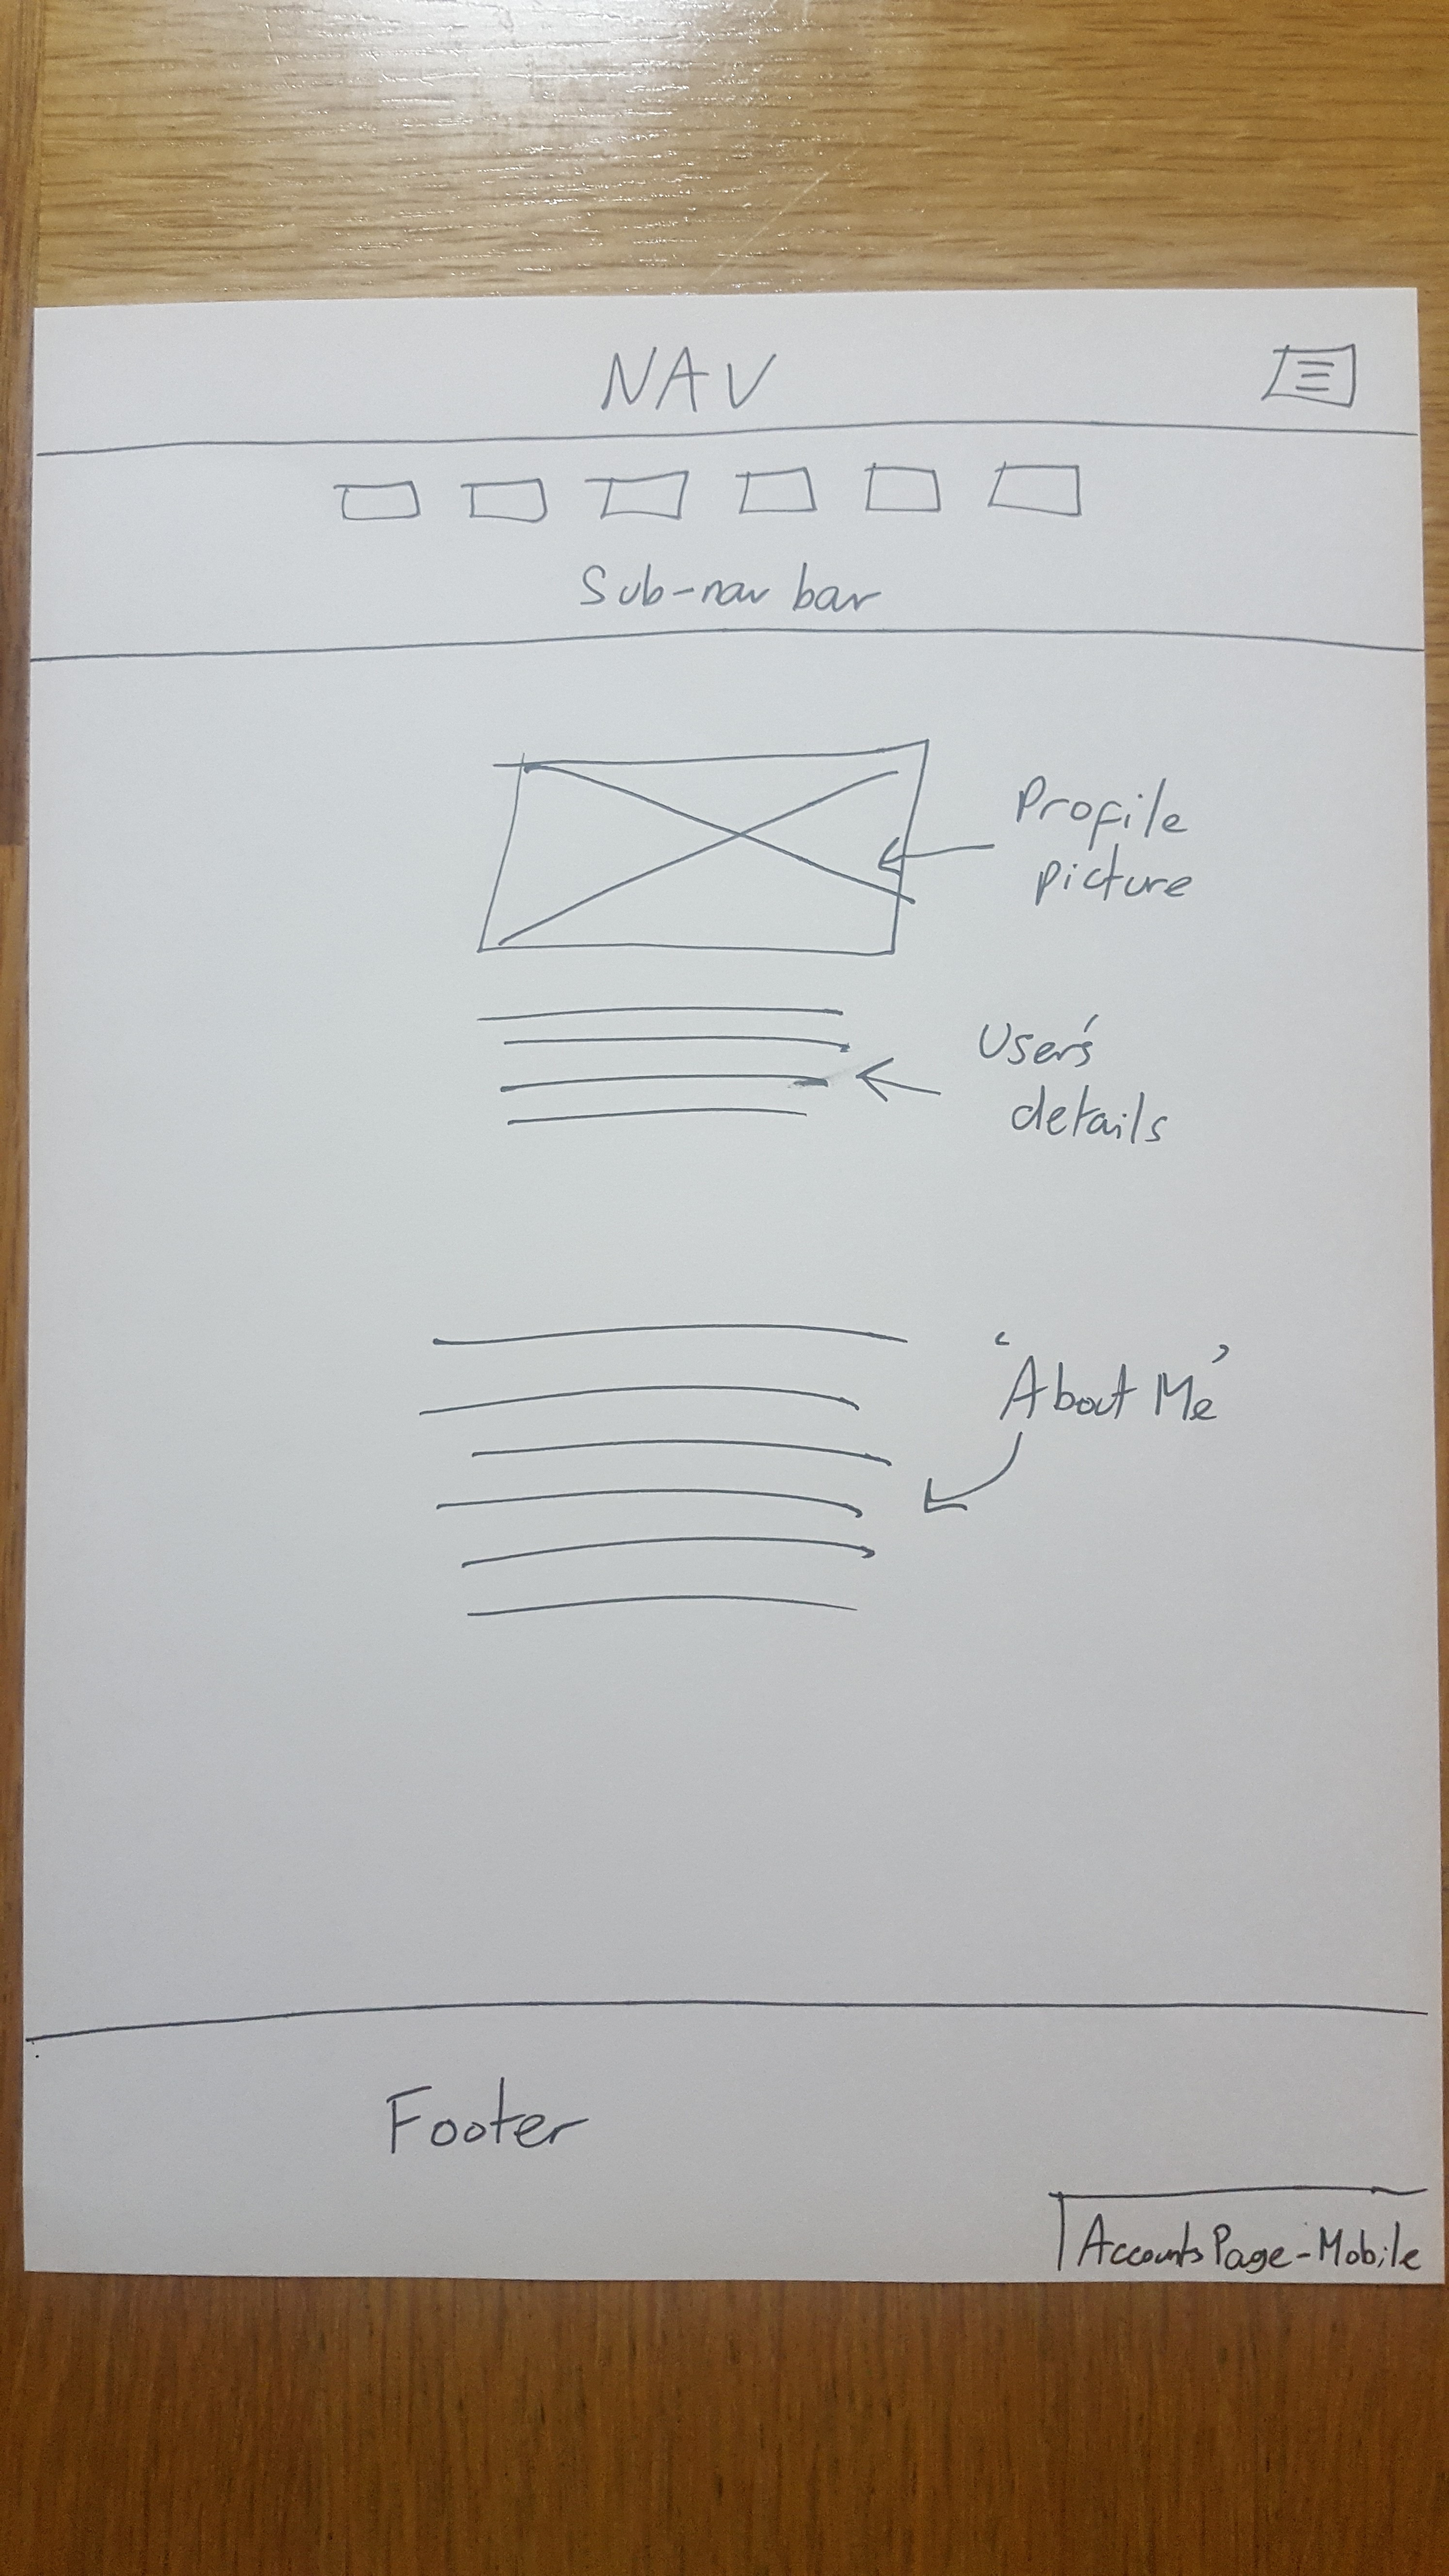 NAV
Sub-nav bar
Profile
picture
User's
details
'About Me'
Footer
Accounts Page-Mobile